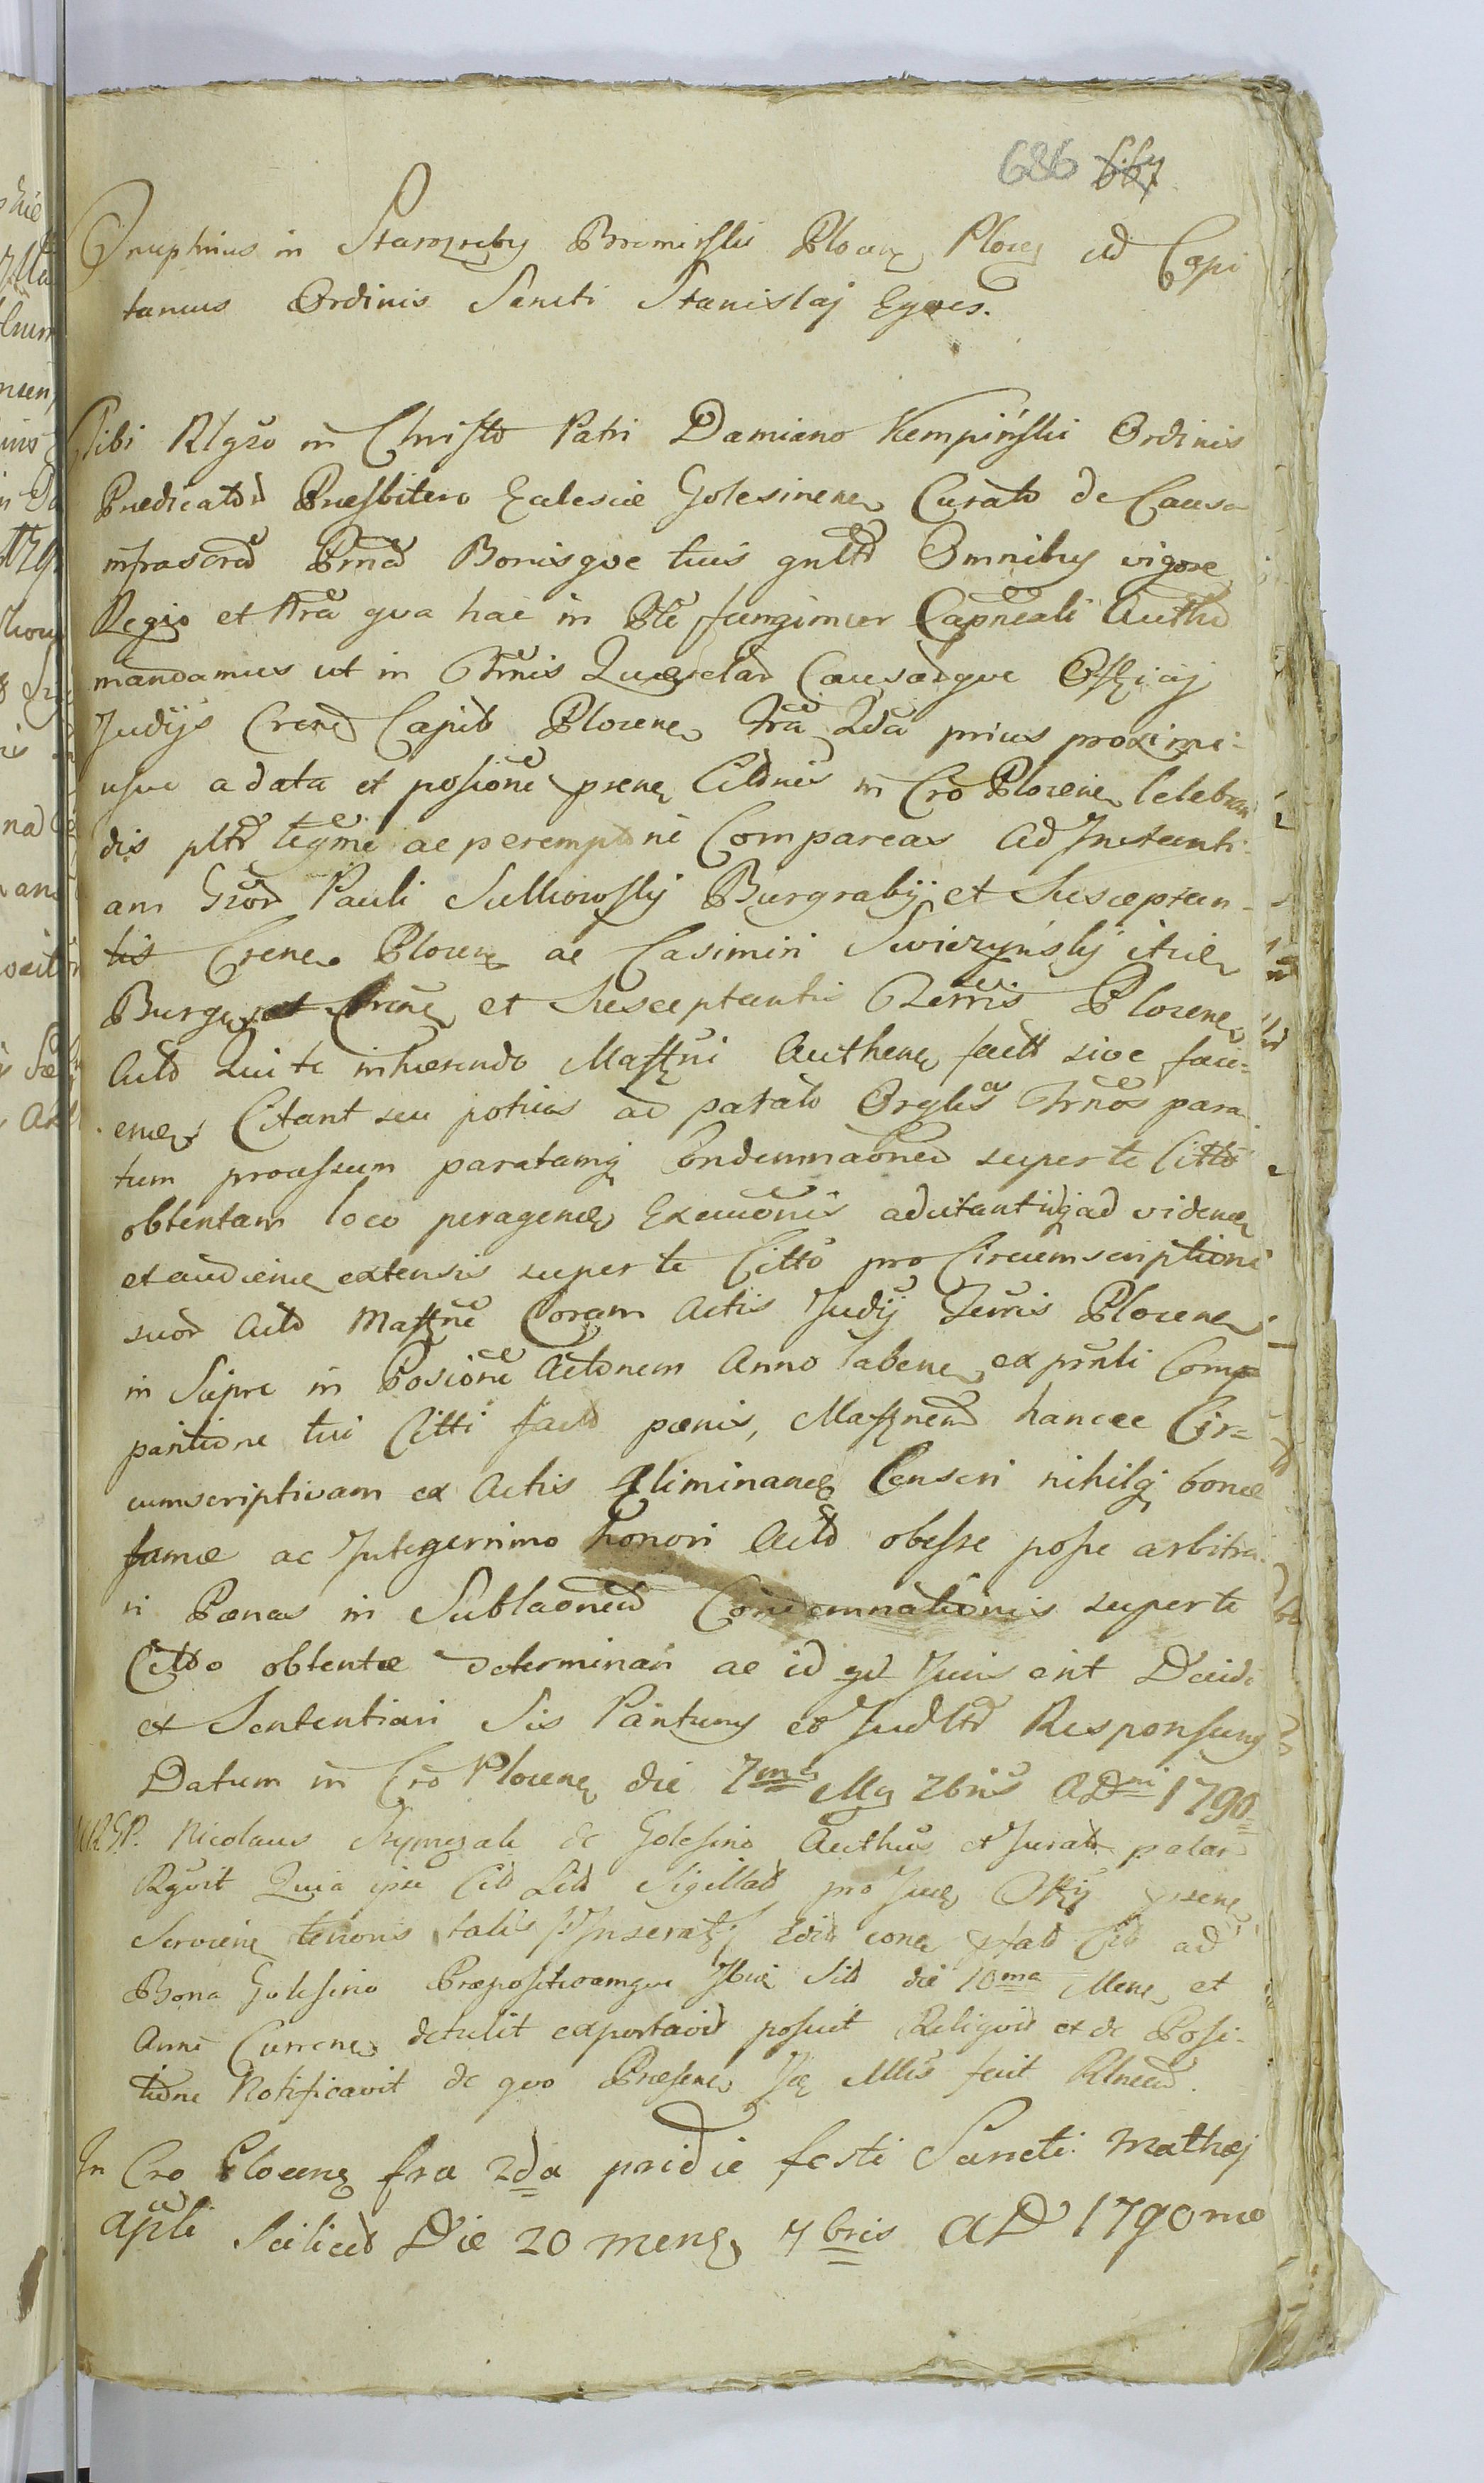 686 667
Onuphrius in Starozreby Bromirski Plocen Plocen ad Capi
taneus Ordinis Sancti Stanislaj Eques.
Tibi Rlgso in Christo Patri Damiano Kempiński Ordinis
Predicatod Præsbitero Eclesiæ Golesinen Curato de Causa
infrascrod Prnd Bonisque tuis gnltd Omnibus vigore
Regio et Nra qua hac in Pte fungimur Capneali Autthe
mandamus ut in Trnis Querelad Causadque Offciaj
Judijs Crend Capito Plocene Fra 2da prius proxime
usve a data et posione prene Citdnis in Cro Plocene Celebran
dis pltr legme ac peremptorie Compareas Ad Instanti
am Gsod Pauli Sulkowskij Burgrabij et Susceptan-
tis Crene Plocene ac Casimiri Swiezyńskij itide
Burge et Crene et Susceptantis Terris Plocene
Actd Qui te inhærendo Maffni Authene factt sive faci-
ene Citant seu potius ad patalo Orglis Trnos para
tum processum paratamq Condemnaoned super te Citto
obtentam loco peragene Execuonis adcitantidq ad videne
et audiene extensis super te Citto pro Circumscriptione
suod Actd Maffne Coram Actis Judij Terris Plocene
in Supre in Posione Actonem Anno labene ex prnti Comp
paritione tui Citti facto pœnis, Maffnemd hancce Cir=
cumscriptivam ex Actis Eliminane Censeri nihilq bonæ
famæ ac Integerrimo honori Actd obesse posse arbitra
ri Pœnas in Sublaoned Condemnationis super te
Cittdo obtentæ determinari ac id qd Juris erit Decidi
et Sententiari Sis Pariturus et Judltd Responsurus
Datum in Cro Plocene die 7ma Mq 7bris ADni 1790
Nicolaus de Golesino Authus et Jurats palar
Rgvit Quia ipse Cid Litt Sigillad pro Jue Offij prene
Serviene tenoris talis Inserat cone Ctad ad
Bona Golesino Præpositivamque Ibid Sitd die 10ma Mene et
Anni Currene detulit exportavit posuit Reliquit et de Posi-
tione Notificavit de quo Præsene Jce Mlis fuit Rlnend.
In Cro Plocene fra 2da pridie festi Sancti Mathæj
Apli Scilicet Die 20 mens 7bris AD 1790mo